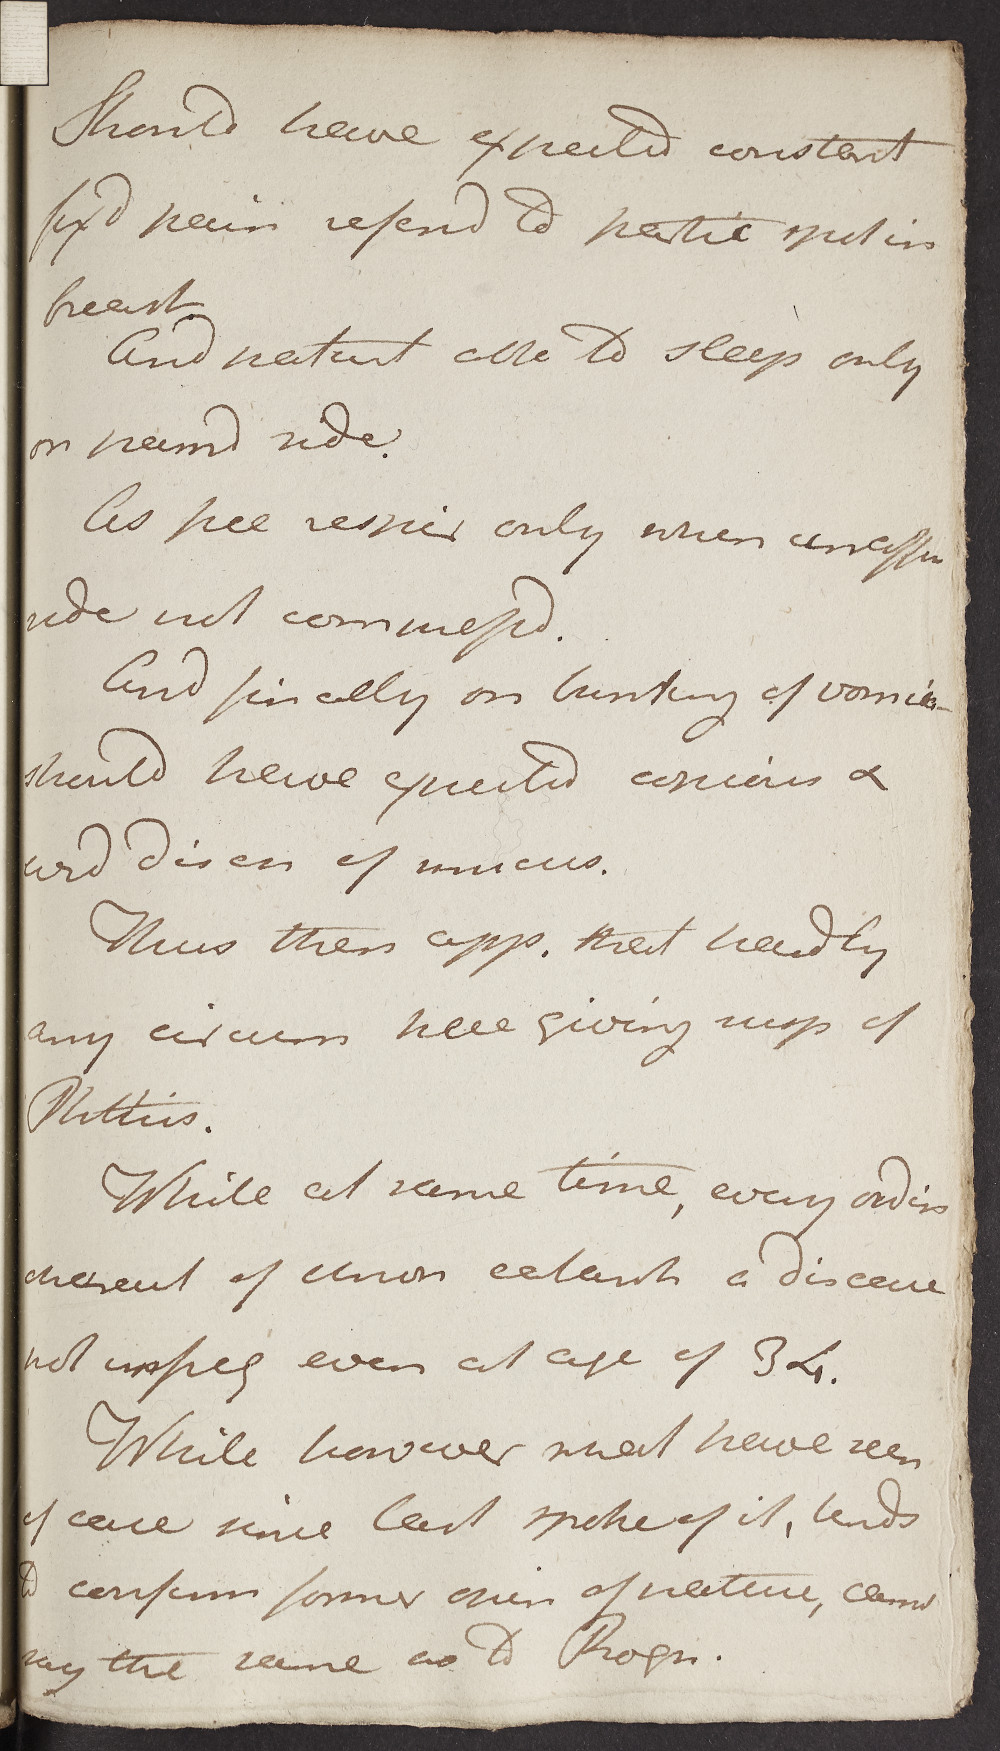 Should have expected constant
fix'd pain referd to partic spot in
breast.
And patient able to sleep only
on pained side.
As free respir only when unaffec
side not compressd.
And finally on bursting of vomica
should have expected copious &
disch of mucus.
Thus then app. that hardly
any circum here giving susp of
Phthisis.
While at same time, every ordin
of chron catarrh a disease
not unfreq even at age of 34.
While however what have seen
of case since last spoke of it, tends
to confirm former opin of nature, cannt
say the same as to Progn.